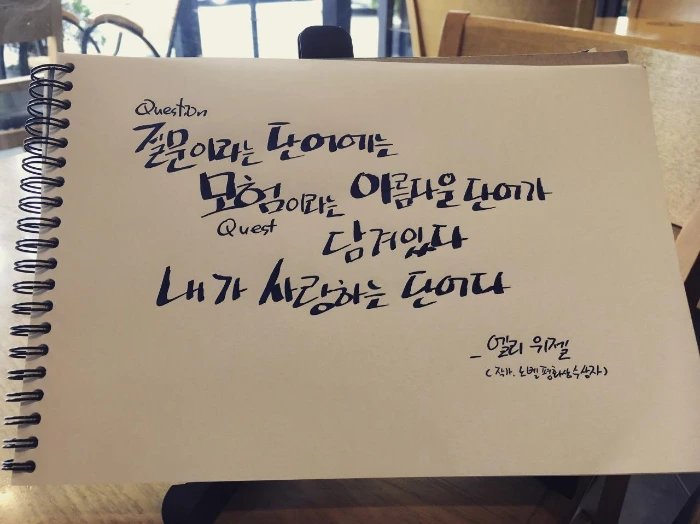 Question
질문이라는 단어에는
모험이라는 아름다운 단어가
Quest
담겨있다
내가 사랑하는 단어다
_ 엘리 위젤
(작가. 노벨평화상수상자)